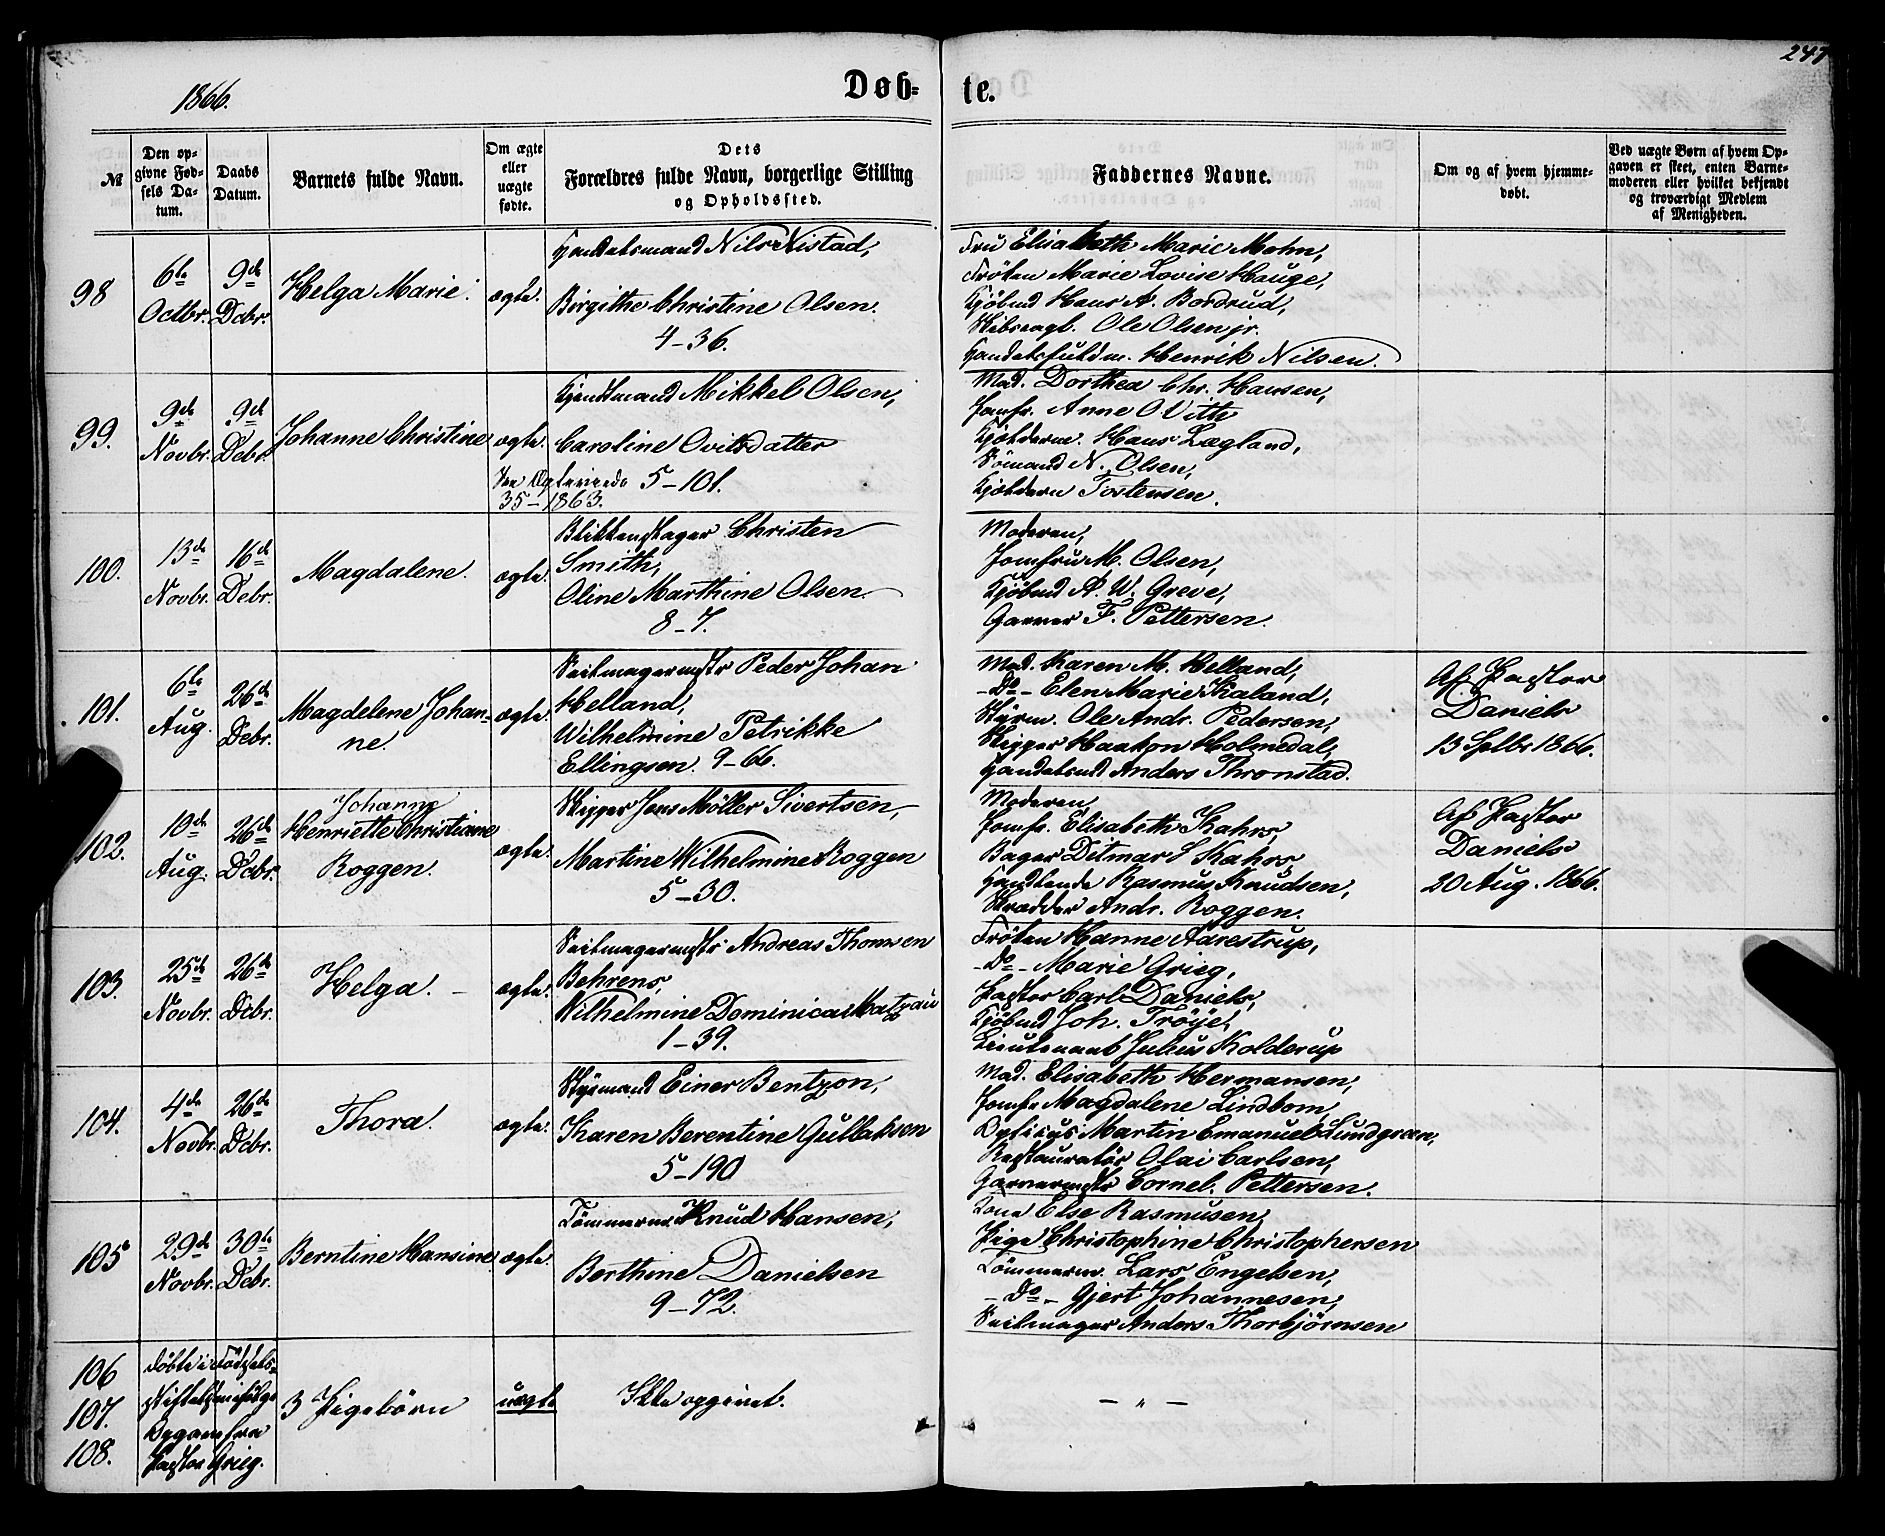 247
1866.
Døb-
te.
№
Den op-
givne Fød-
sels Da-
tum.
Daabs
Datum.
Barnets fulde Navn.
Om ægte
eller
uægte
fødte.
Dets
Forældres fulde Navn, borgerlige Stilling
og Opholdssted.
Faddernes Navne.
Om og af hvem hjemme-
døbt.
Ved uægte Børn af hvem Op-
gaven er skeet, enten Barne-
moderen eller hvilket bekjendt
og troværdigt Medlem
af Menigheden.
98
6te
Octbr.
9de
Dcbr.
Helga Marie.
ægte.
Handelsmand Nils Nistad,
Birgithe Christine Olsen.
4-36.
Fru Elisabeth Marie Mohn,
Frøken Marie Lovise Hauge,
Kjøbmd Hans A. Bordrud,
Skibsvagt. Ole Olsen jr.
Handelsfuldm. Henrik Nilsen.
99.
9de
Novbr.
9de
Debr.
Johanne Christine
ægte.
Mikkel Olsen,
Caroline Ovitsdatter
5-101.
35-1863.
Mad. Dorthea Chr. Hansen,
Jomfr. Anne O Vith
Hans Lægland,
Sømand N. Olsen,
Tostensen.
100.
13de
Novbr.
16de
Debr.
Magdalene.
ægte.
Blikkenslager Christen
Smith,
Oline Marthine Olsen.
8-7.
Moderen,
Jomfru M. Olsen,
Kjøbmd A. W. Greve,
Garver F. Pettersen.
101.
6te
Aug.
26de
Debr.
Magdelene Johan-
ne.
ægte.
Seilmagermstr Peder Johan
Helland,
Wilhelmine Petrikke
Ellingsen. 9-66.
Mad. Karen M. Helland,
-Do- Elen Marie Kaland,
Styrm. Ole Andr. Pedersen,
Skipper Haakon Holmedal,
Handelsmd Anders Thronstad.
Af Pastor
Daniels
13 Septbr 1866.
102.
10de
Aug.
26de
Dcbr.
Johanne
Henriette Christiane
Roggen.
ægte.
Skipper Jens Møller Sivertsen,
Martine Wilhelmine Roggen
5-30.
Moderen,
Jomfr. Elisabeth Kahrs,
Bager Ditmar S Kahrs,
Handlende Rasmus Knudsen,
Skrædder Andr. Roggen.
Af Pastor
Daniels
20 Aug. 1866.
103.
25de
Novbr.
26de
Dcbr.
Helga.
ægte.
Seilmagermstr Andreas Thomsen
Behrens,
Wilhelmine Dominica Matzau
1-39.
Frøken Hanne Aarestrup,
-Do- Marie Grieg,
Pastor Carl Daniels,
Kjøbmd Joh. Trøye,
Lieutenant Julius Kolderup
104.
4de
Novbr.
26de
Dcbr.
Thora.
ægte.
Styrmand Einer Bentzon,
Karen Berentine Gullaksen
5-190
Mad. Elisabeth Hermansen,
Jomfr Magdalene Lindbom,
Opticus Martin Emanuel Lundgreen,
Restauratør Olai Carlsen,
Garvermstr Cornel. Pettersen.
105
29de
Novbr.
30te
Dcbr.
Berntine Hansine
ægte.
Tømmerm Knud Hansen,
Berthine Danielsen
9-72.
Kone Else Rasmusen,
Pige Christophine Christophersen
Tømmerm. Lars Engelsen,
-Do- Gjert Johannesen,
Seilmager Anders Thorbjørnsen
106
107.
108.
døbte i Fødsels-
stiftelsen ifølge
Opgave fra
Pastor Grieg.
3 Pigebørn
uægte
Ikke opgivet.
- " -